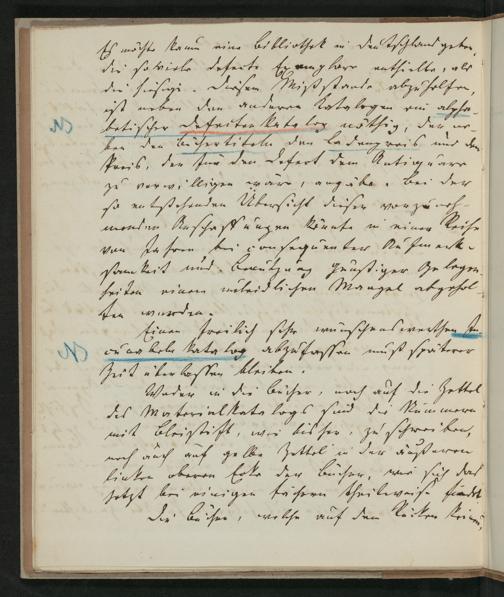 Es möchte kaum eine Bibliothek in Deutschland geben,
die so viele defecte Exemplare enthielte, als
die hiesige. Diesem Mißstande abzuhelfen,
ist neben den anderen Katalogen ein alpha-
betischer Defectenkatalog nöthig, der ne-
ben den Büchertiteln den Ladenpreis und den
Preis, der für den Defect dem Antiquare
zu verwilligen wäre, angäbe. Bei der
so entstehenden Übersicht dieser vorzuneh-
menden Anschaffungen könnte in einer Reihe
von Jahren bei consequenter Aufmerk-
samkeit und Benutzung günstiger Gelegen-
heiten einem unleidlichen Mangel abgehol-
fen werden.
Einen freilich sehr wünschenswerthen In-
cunabelnkatalog abzufassen muß späterer
Zeit überlassen bleiben.
Weder in die Bücher, noch auf die Zettel
des Materialkatalogs sind die Nummern
mit Bleistift, wie bisher, zu schreiben,
noch auch auf gelbe Zettel in der äußeren
linken oberen Ecke der Bücher, wie sich das
jetzt bei einigen Fächern theilweise findet.
Die Bücher, welche auf dem Rücken keinen